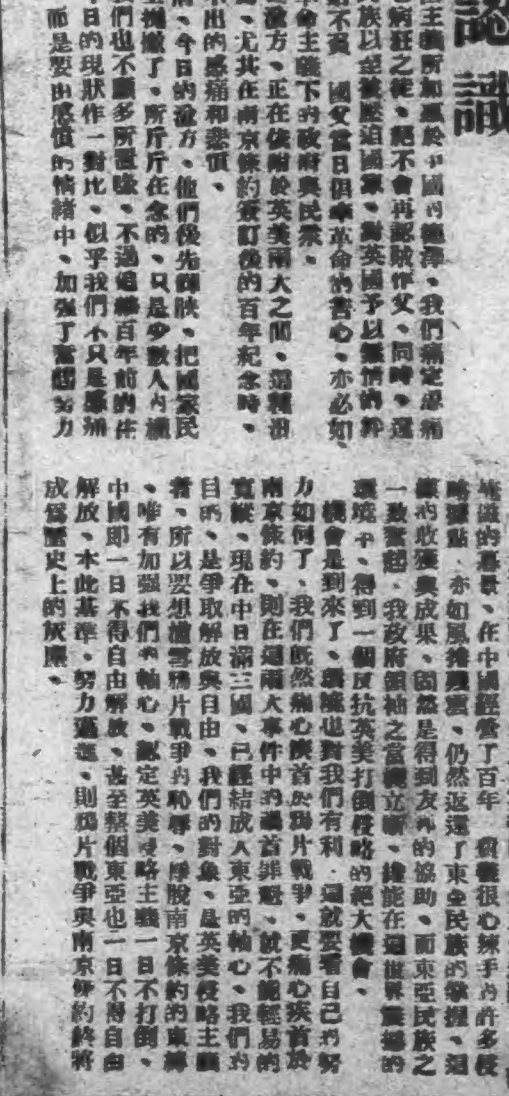 認識
主義所加惠於中國的德澤、我們痛定思痛
病狂之徒、絕不會再認賊作父、同時、還
族以至被壓迫國家、對英國予以無情的
不負 國父當日倡革命的苦心、亦必如
革命主義下的政府與民眾。
方、正在依附於英美兩大之間、這種
、尤其在南京條約簽訂後的百年紀念時、
出的感痛和悲憤。
、今日的渝方、他們後先輝映、把國家民
撤了、所斤斤在念的、只是少數人的
們也不願多所、不過追百年前的
日的現狀作一對比、似乎我們不只是感痛
而是要由感憤的情緒中、加強了奮起努力
的暮景、在中國經營了百年 狠心辣手的許多侵
略據點、亦如風捲殘雲、仍然返還了東亞民族的掌握、這
樣的收獲與成果、固然是得到友邦的協助、而東亞民族之
一致奮起、我政府領袖之當機立斷、才能在這世界的
環境中、得到一個反抗英美打倒侵略的絕大機會。
機會是到來了、環境也對我們有利、這就要看自己的努
力如何了、我們既然痛心疾首於鴉片戰爭、更痛心疾首於
南京條約、則在這兩大事件中的禍首罪魁、就不能輕易的
寬縱、現在中日滿三國、已經結成大東亞的軸心、我們的
目的、是爭取解放與自由、我們的對象、是英美侵略主義
者、所以要想湔雪鴉片戰爭的恥辱、掙脫南京條約的束縛
、唯有加強我們的軸心、認定英美侵略主義一日不打倒、
中國即一日不得自由解放、甚至整個東亞也一日不得自由
解放、本此基準、努力邁進、則鴉片戰爭與南京條約終將
成為歷史上的灰塵。